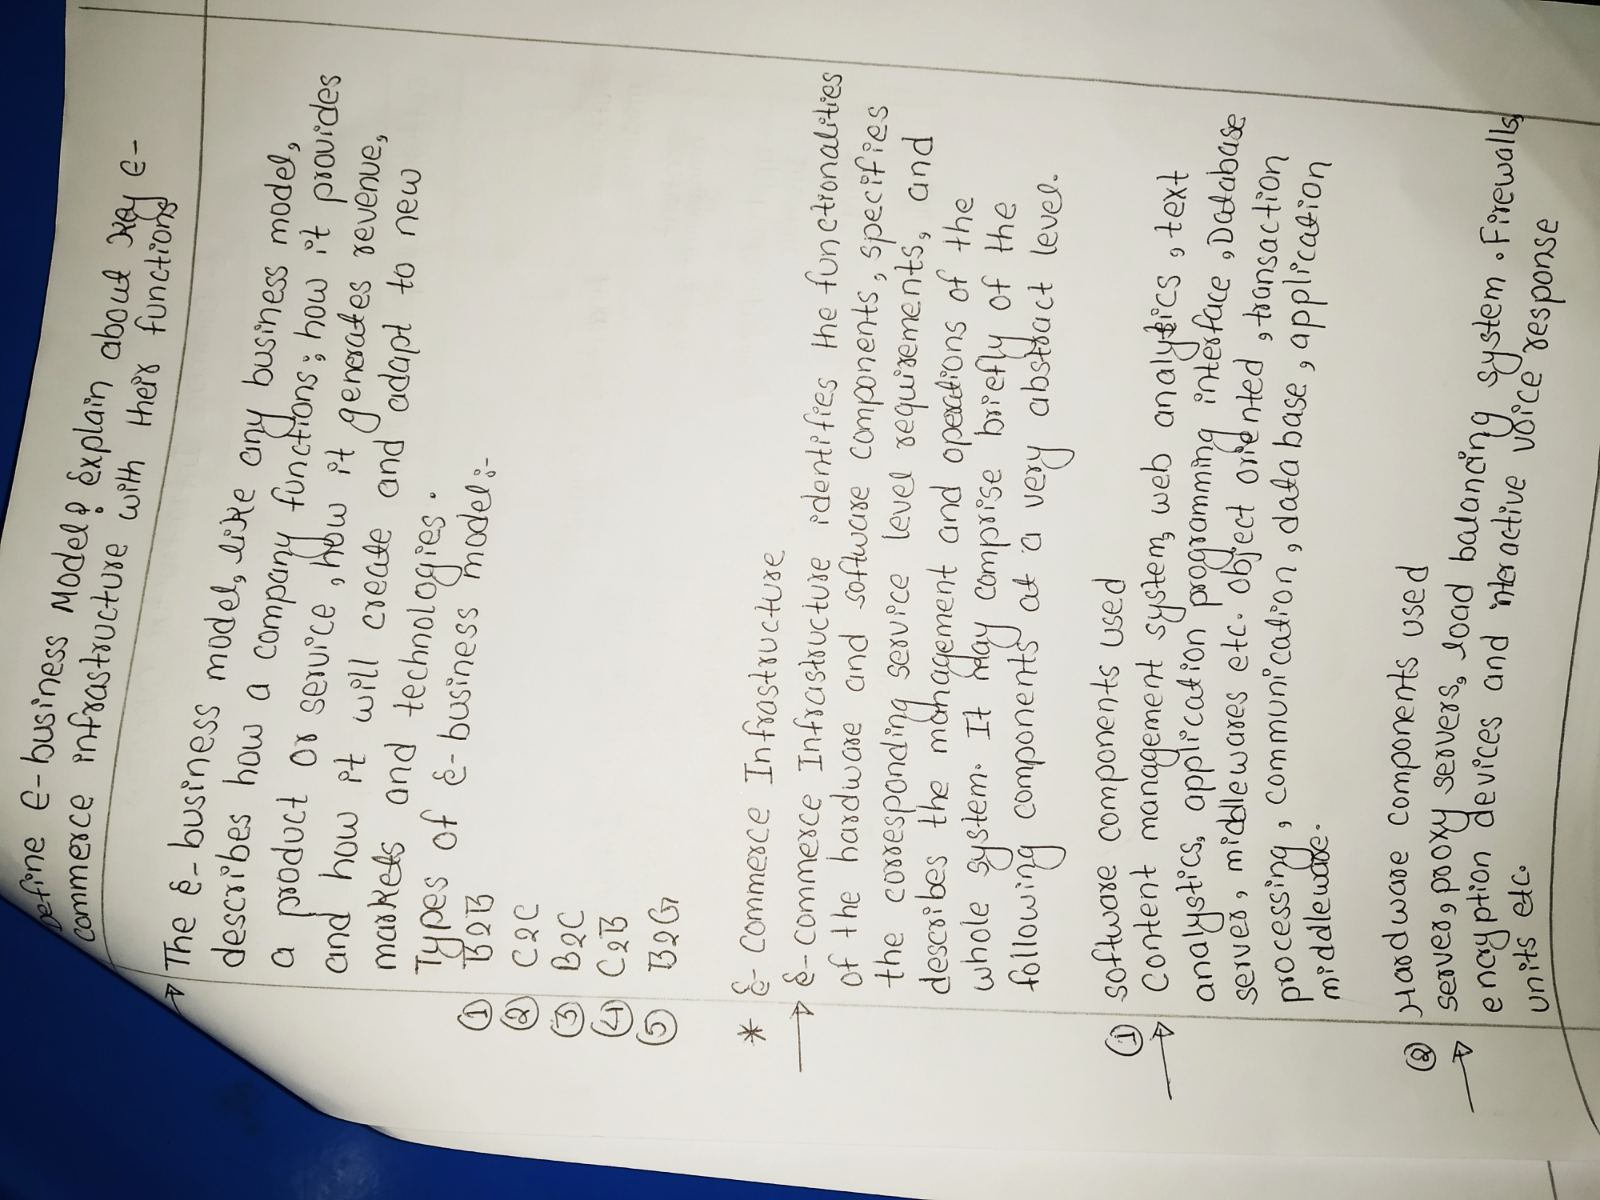 Define E-business Model? Explain about Key E-
commerce infrastructure with their functions
The E-business model, like any business model,
describes how a company functions; how it provides
a product or service, how it generates revenue,
and how it will create and adapt to new
markets and technologies.
Types of E-business model:-
① B2B
② C2C
③ B2C
④ C2B
⑤ B2G
* E-Commerce Infrastructure
→ E-commerce Infrastructure identifies the functionalities
of the hardware and software components, specifies
the corresponding service level requirements, and
describes the management and operations of the
whole system. It may comprise briefly of the
following components at a very abstract level.
① software components used
→ Content management system, web analytics, text
analystics, application programming interface, Database
server, middlewares etc. object oriented, transaction
processing, communication, database, application
middleware.
② Hardware components used
→ server, proxy servers, load balancing system. Firewalls,
encryption devices and interactive voice response
units etc.